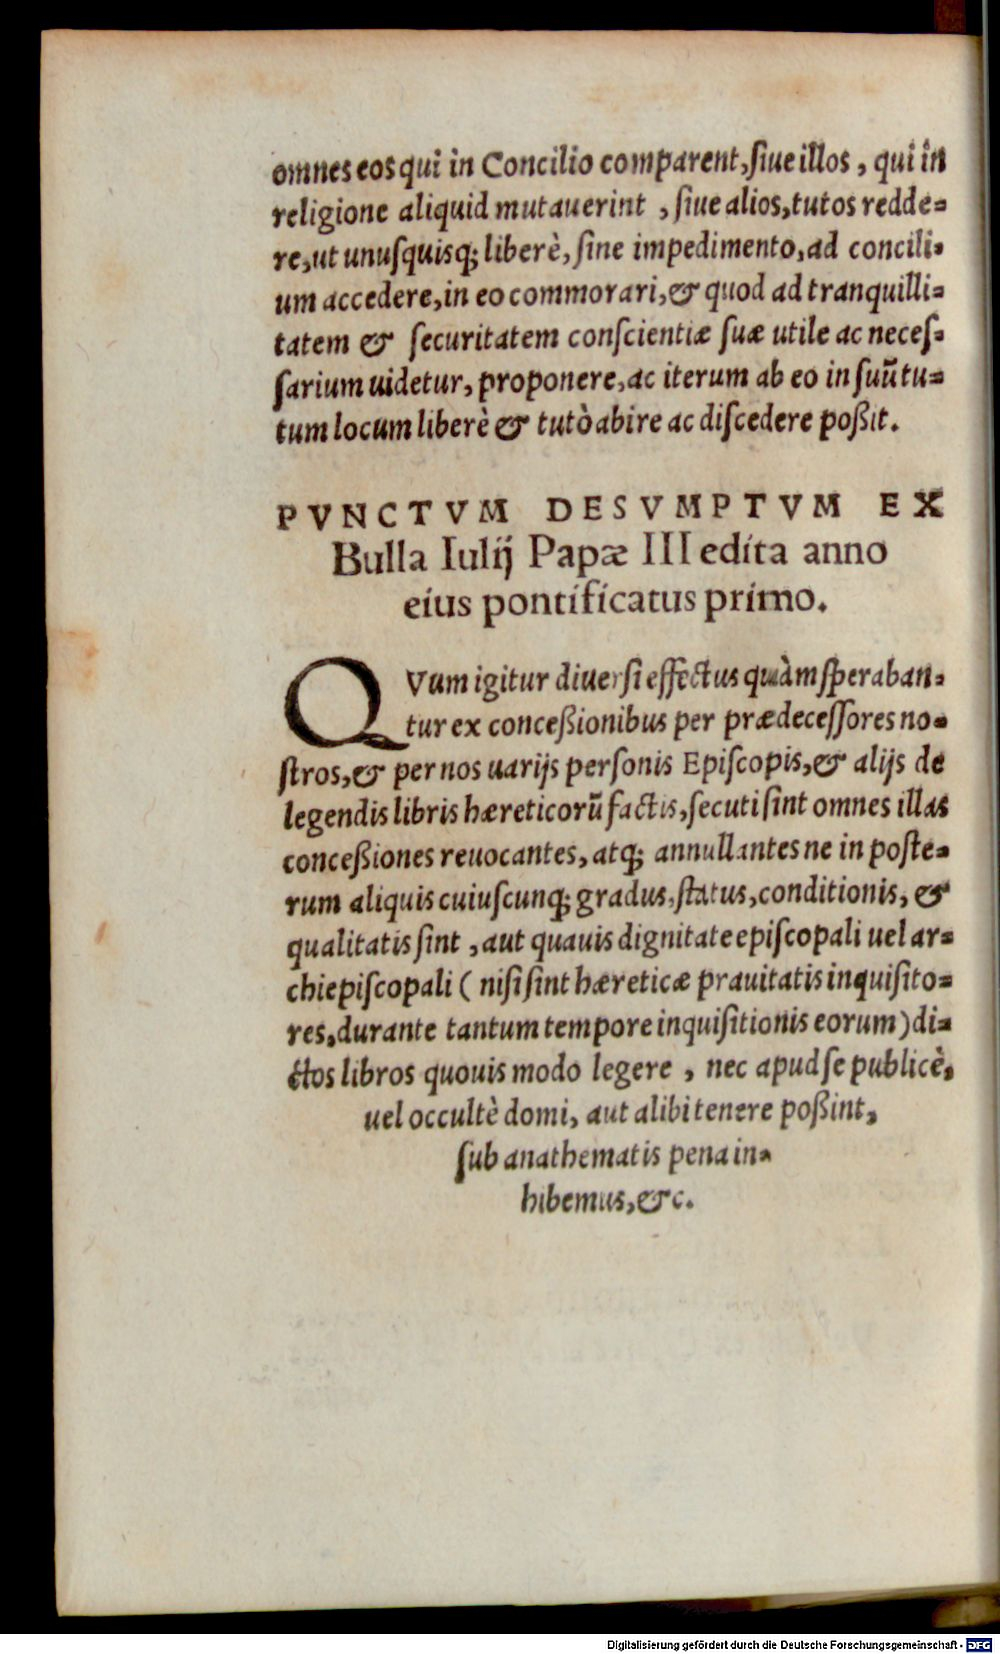 omnes eos qui in Concilio comparent, ſiue illos, qui in
religione aliquid mutauerint, ſiue alios, tutos redde-
re, ut unuſquisq; liberè, ſine impedimento, ad concili-
um accedere, in eo commorari, & quod ad tranquilli-
tatem & ſecuritatem conſcientiæ ſuæ utile ac neceſ-
ſarium uidetur, proponere, ac iterum ab eo in ſuũ tu-
tum locum liberè & tutò abire ac diſcedere poßit.
PVNCTVM DESVMPTVM EX
Bulla Iulij Papæ III edita anno
eius pontificatus primo.
QVum igitur diuerſi effectus quàm ſperaban-
tur ex conceßionibus per prædeceſſores no-
ſtros, & per nos uarijs perſonis Epiſcopis, & alijs de
legendis libris hæreticorũ factis, ſecuti ſint omnes illas
conceßiones reuocantes, atq; annullantes ne in poſte-
rum aliquis cuiuſcunq; gradus, ſtatus, conditionis, &
qualitatis ſint, aut quauis dignitate epiſcopali uel ar-
chiepiſcopali ( niſi ſint hæreticæ prauitatis inquiſito-
res, durante tantum tempore inquiſitionis eorum) di-
ctos libros quouis modo legere, nec apud ſe publicè,
uel occultè domi, aut alibi tenere poßint,
ſub anathematis pena in-
hibemus, &c.
Digitalisierung gefördert durch die Deutsche Forschungsgemeinschaft - DFG